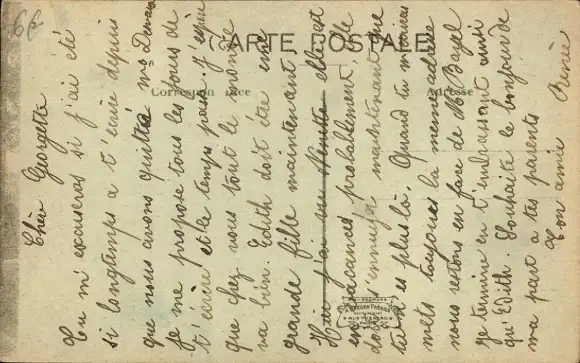 6f
CARTE POSTALE
Correspondance
Adresse
Chèr Georgette
Tu m'excuseras si j'ai été
si longtemps a t'écrire depuis
que nous avons quittée
Je me propose tous les jours de
t'écrire et le temps passe. J'espère
que chez vous tout le monde
va bien. Edith doit être une
grande fille maintenant
Hier j'ai vu elle est
en vacances probablement, elle
s'ennuye maintenant que
tu es plus là. Quand tu m'écriras
mets toujours la meme adresse
nous restons en face de M. Bayel
je termine en t'embrassant ainsi
qu'Edith. Souhaite le bonjour de
ma part a tes parents
Ton amie Renée